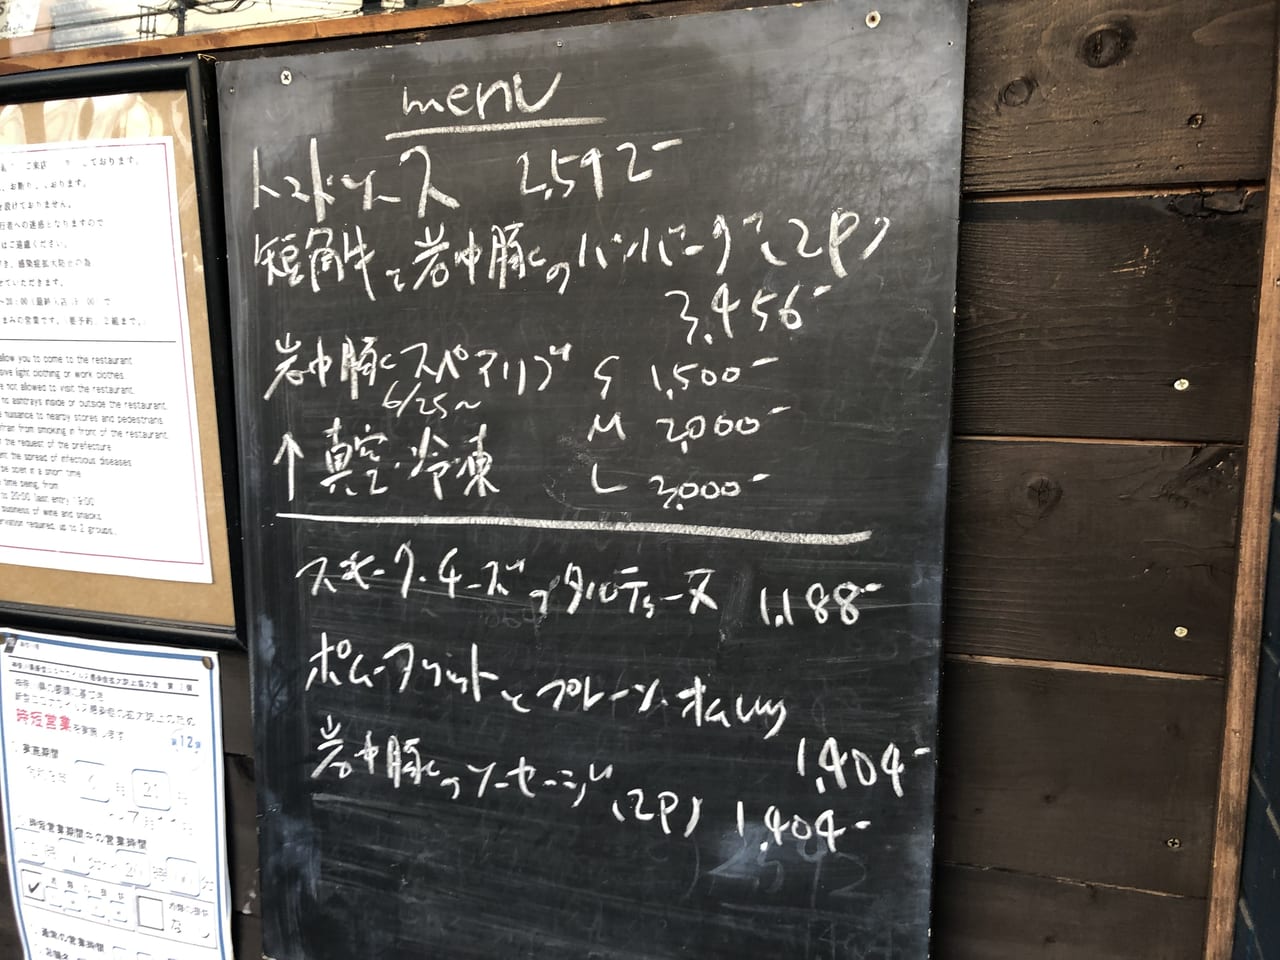 menu
トマトソース 2,592-
短角牛と岩中豚のハンバーグ(2P)
3,456-
岩中豚スペアリブ S 1,500-
6/25~
M 2,000-
↑真空・冷凍
L 3,000-
スモーク・チーズのタルティーヌ 1,188-
ポム・フリットとプレーン・オムレツ
1,404-
岩中豚のソーセージ(2P) 1,404-
ご来店 しております。
お断り しております。
設けておりません。
行者への迷惑となりますので
はご遠慮ください。
感染症拡大防止の為
せていただきます。
~20:00(最終入店19:00)で
まみの営業です。(要予約 2組まで。)
allow you to come to the restaurant
sive light clothing or work clothes
e not allowed to visit the restaurant.
no ashtrays inside or outside the restaurant.
nuisance to nearby stores and pedestrians.
efrain from smoking in front of the restaurant.
the request of the prefecture
ent the spread of infectious diseases
be open in a short time
time being, from
to 20:00 (last entry 19:00
business of wine and snacks.
ervation required, up to 2 groups.
時短営業を実施します
第12弾
実施期間
時短営業期間中の営業時間
通常の営業時間